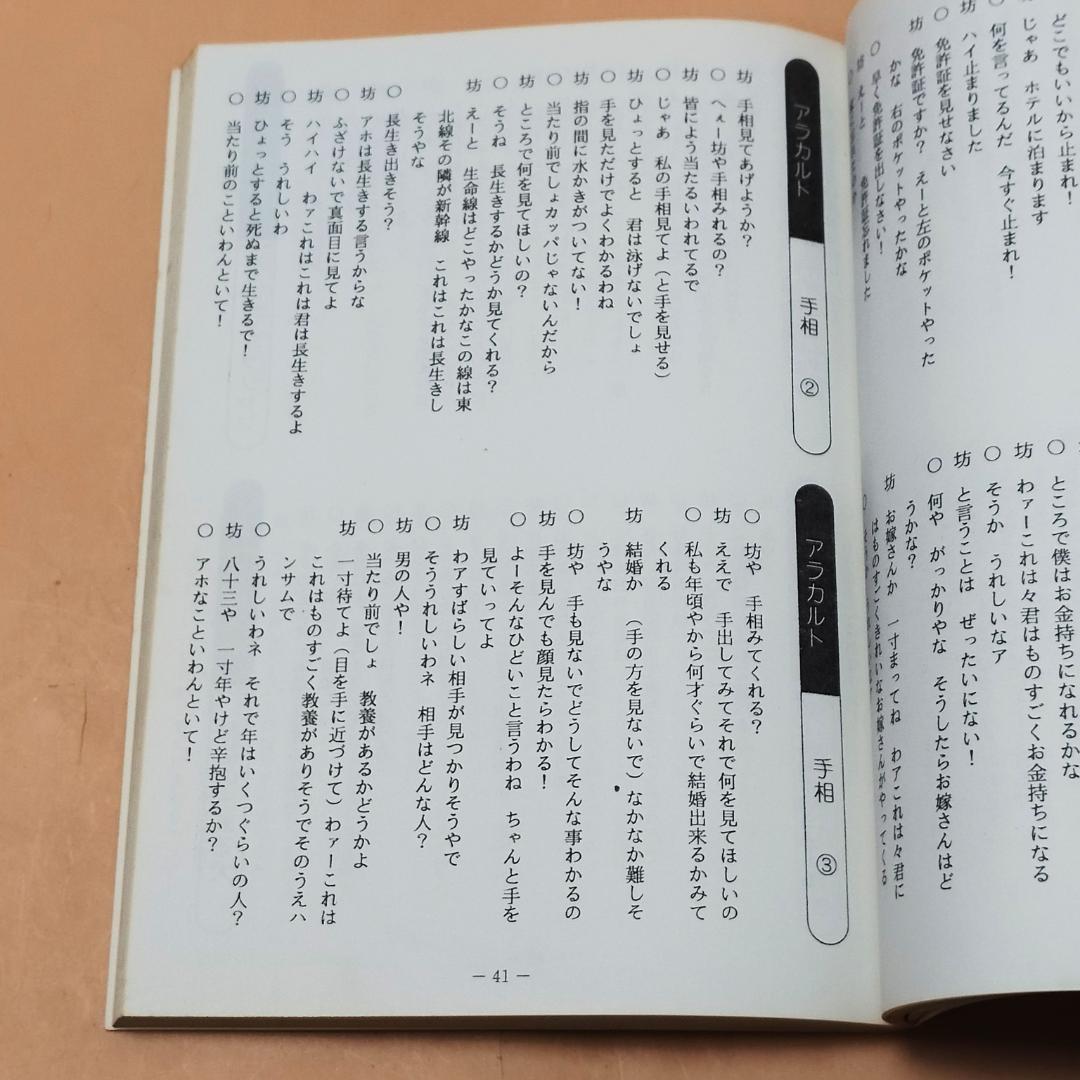 どこでもいいから止まれ!
じゃあ ホテルに泊まります
○ 何を言ってるんだ 今すぐ止まれ!
坊 ハイ止まりました
○ 免許証を見せなさい
坊 免許証ですか? えーと左のポケットやった
かな 右のポケットやったかな
○ 早く免許証を出しなさい!
坊 えーと 免許証忘れました
○ ところで僕はお金持ちになれるかな
坊 わァーこれは々君はものすごくお金持ちになる
○ そうか うれしいなア
坊 と言うことは ぜったいにない!
○ 何や がっかりやな そうしたらお嫁さんはど
うかな?
坊 お嫁さんか 一寸まってね わアこれは々君に
はものすごくきれいなお嫁さんがやってくる
アラカルト 手相 ②
坊 手相見てあげようか?
○ へぇー坊や手相みれるの?
坊 皆によう当たるいわれてるで
○ じゃあ 私の手相見てよ(と手を見せる)
坊 ひょっとすると 君は泳げないでしょ
○ 手を見ただけでよくわかるわね
坊 指の間に水かきがついてない!
○ 当たり前でしょカッパじゃないんだから
坊 ところで何を見てほしいの?
○ そうね 長生きするかどうか見てくれる?
坊 えーと 生命線はどこやったかなこの線は東
北線その隣が新幹線 これはこれは長生きし
そうやな
○ 長生き出きそう?
坊 アホは長生きする言うからな
○ ふざけないで真面目に見てよ
坊 ハイハイ わァこれはこれは君は長生きするよ
○ そう うれしいわ
坊 ひょっとすると死ぬまで生きるで!
○ 当たり前のこといわんといて!
アラカルト 手相 ③
○ 坊や 手相みてくれる?
坊 ええで 手出してみてそれで何を見てほしいの
○ 私も年頃やから何才ぐらいで結婚出来るかみて
くれる
坊 結婚か (手の方を見ないで)なかなか難しそ
うやな
○ 坊や 手も見ないでどうしてそんな事わかるの
坊 手を見んでも顔見たらわかる!
○ よーそんなひどいこと言うわね ちゃんと手を
見ていってよ
坊 わアすばらしい相手が見つかりそうやで
○ そううれしいわネ 相手はどんな人?
坊 男の人や!
○ 当たり前でしょ 教養があるかどうかよ
坊 一寸待てよ(目を手に近づけて)わァーこれは
これはものすごく教養がありそうでそのうえハ
ンサムで
○ うれしいわネ それで年はいくつぐらいの人?
坊 八十三や 一寸年やけど辛抱するか?
○ アホなこといわんといて!
― 41 ―